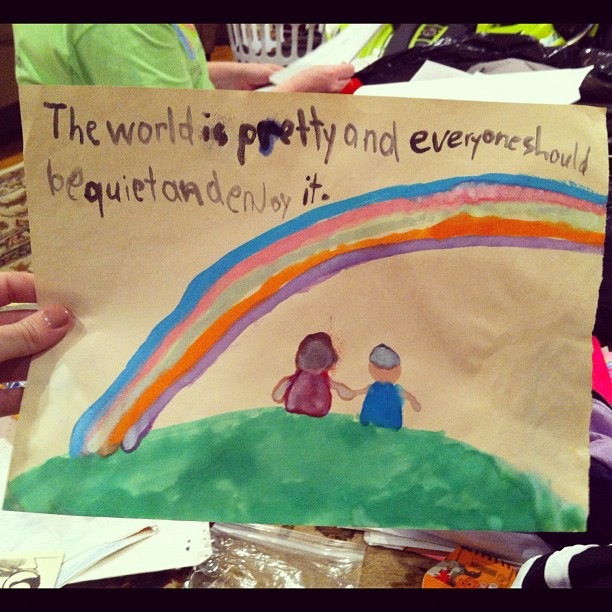 The world is pretty and everyone should
be quiet and enJoy it.